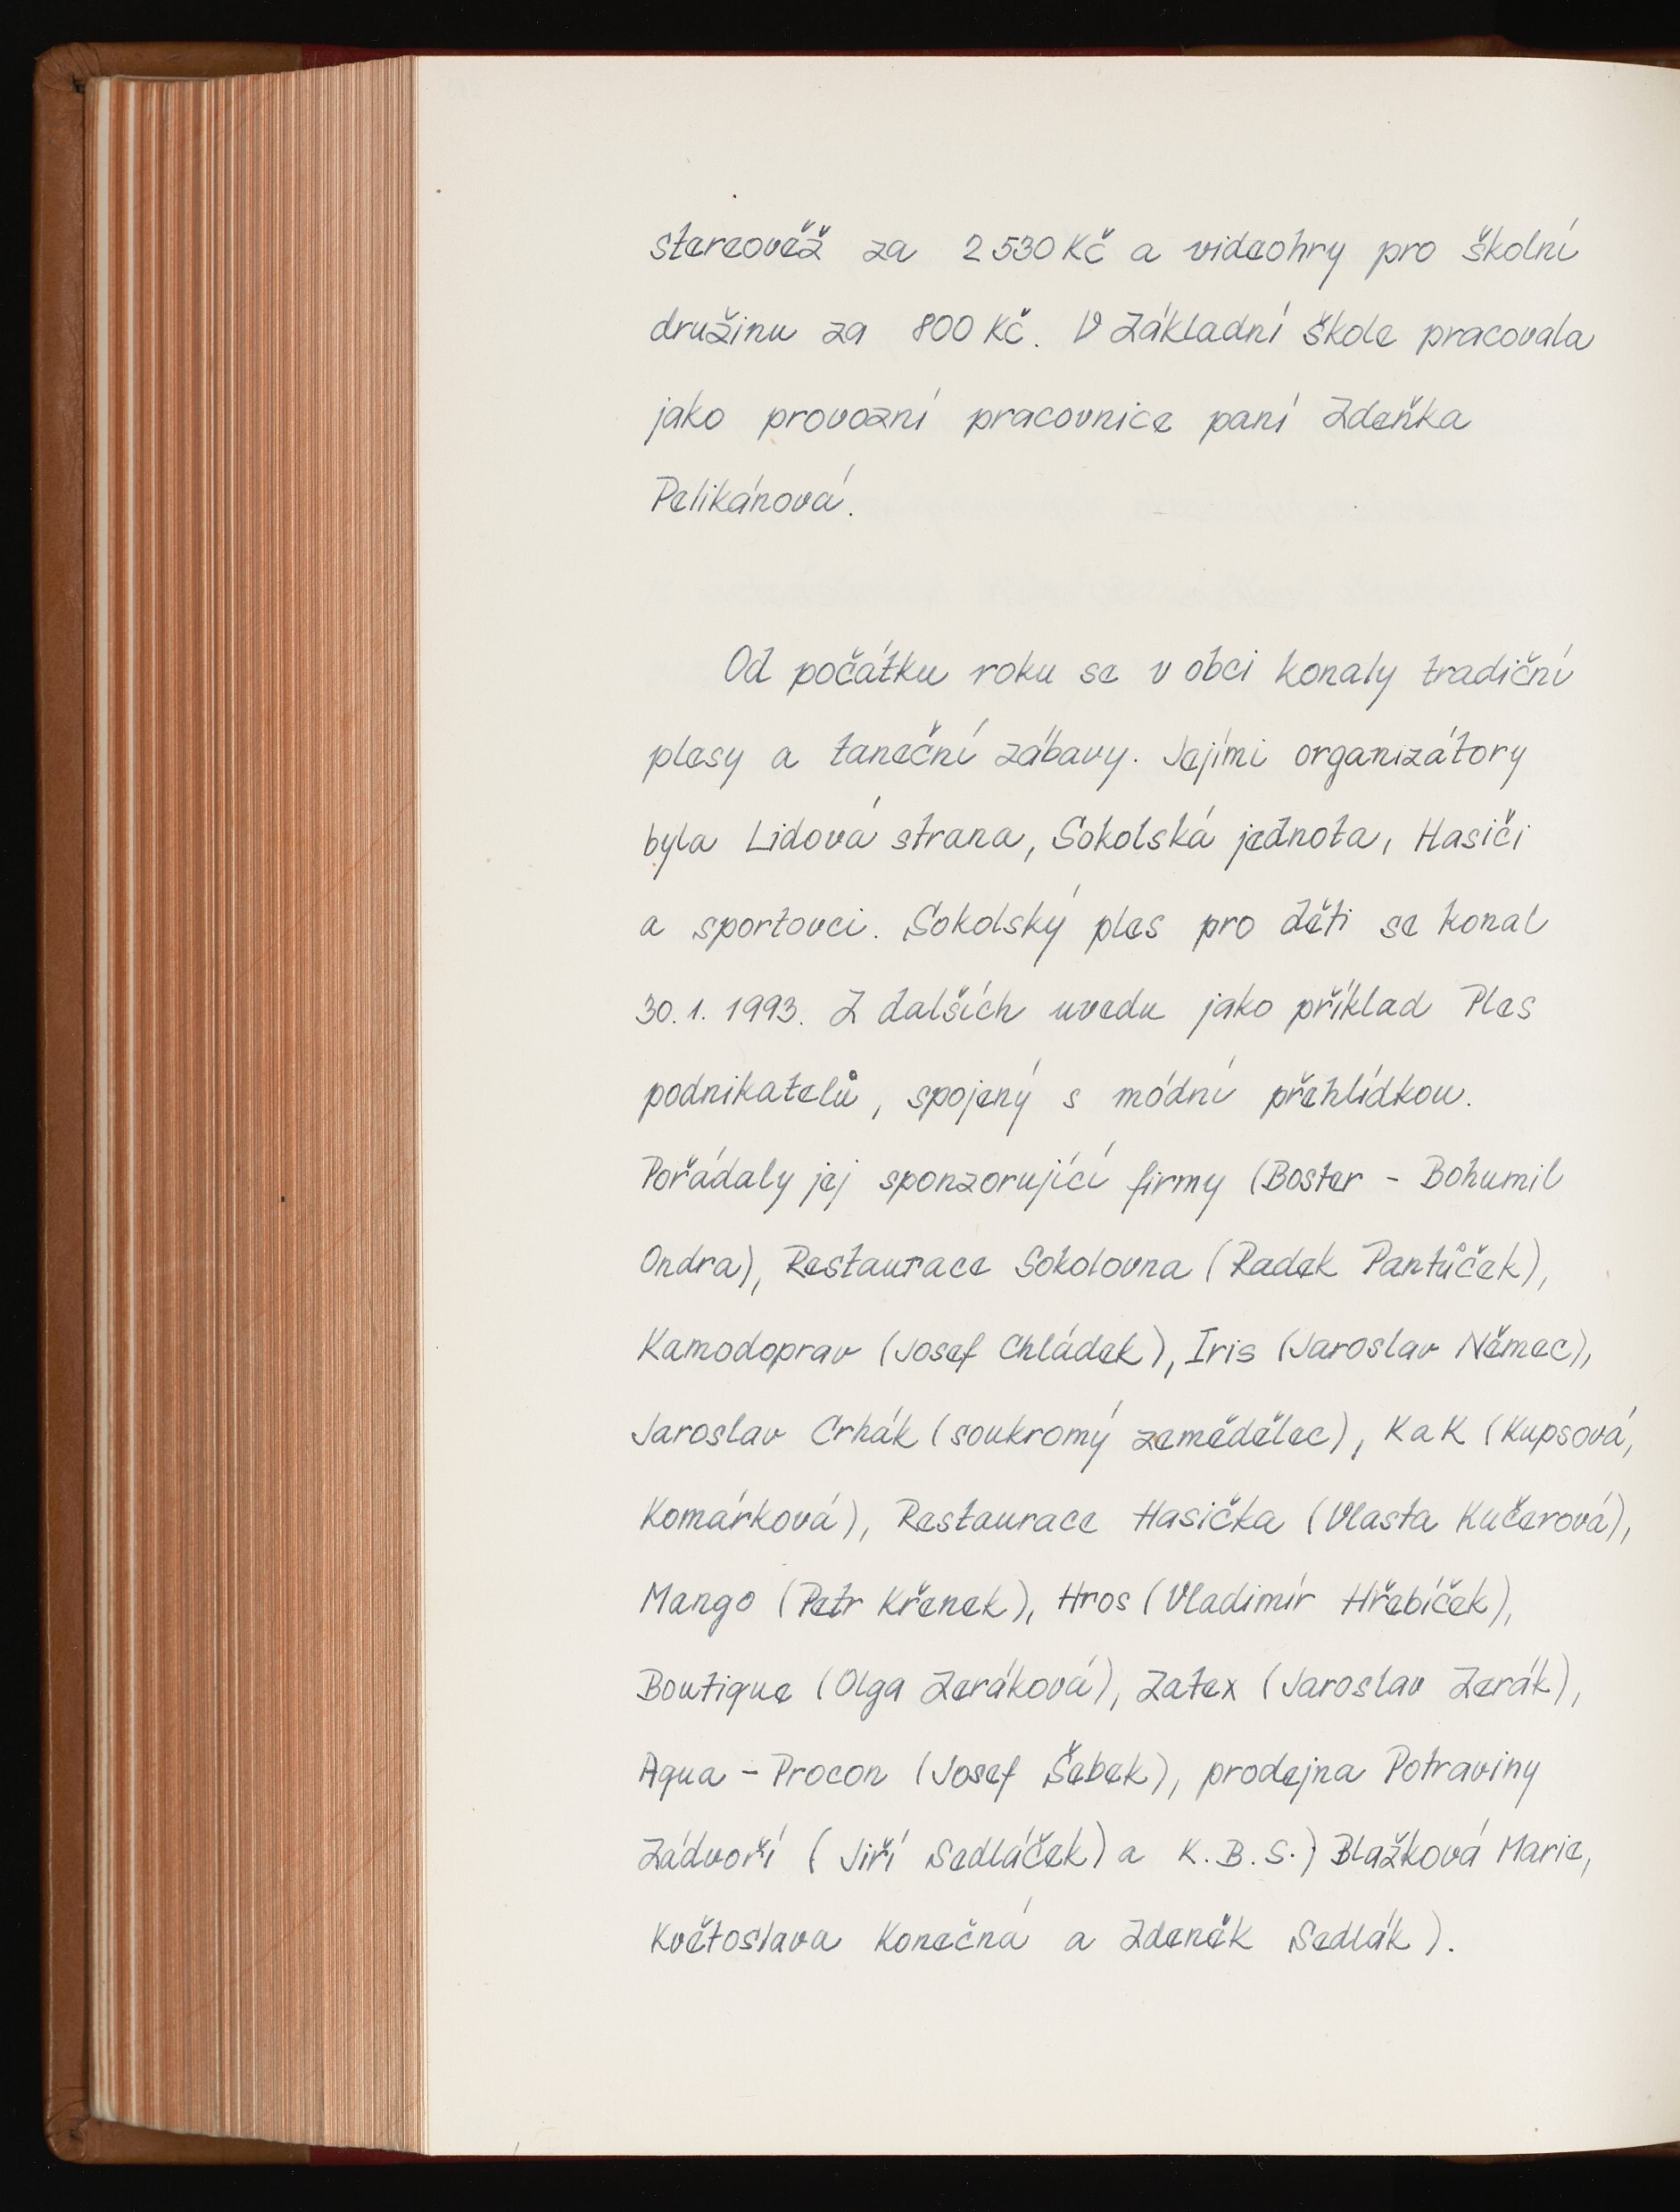 stereověž za 2 530 Kč a videohry pro školní
družinu za 800 Kč. V Základní škole pracovala
jako provozní pracovnice paní Zdeňka
Pelikánová.
Od počátku roku se v obci konaly tradiční
plesy a taneční zábavy. Jejími organizátory
byla Lidová strana, Sokolská jednota, Hasiči
a sportovci. Sokolský ples pro děti se konal
30. 1. 1993. Z dalších uvedu jako příklad Ples
podnikatelů, spojený s módní přehlídkou.
Pořádaly jej sponzorující firmy (Boster - Bohumil
Ondra), Restaurace Sokolovna (Radek Pantůček),
Kamodoprav (Josef Chládek), Iris (Jaroslav Němec),
Jaroslav Crhák (soukromý zemědělec), K a K (Kupsová,
Komárková), Restaurace Hasička (Vlasta Kučerová),
Mango (Petr Křenek), Hros (Vladimír Hřebíček),
Boutique (Olga Zeráková), Zatex (Jaroslav Zerák),
Aqua - Procon (Josef Šebek), prodejna Potraviny
Zádvoří ( Jiří Sedláček) a K. B. S.) Blažková Marie,
Květoslava Konečná a Zdeněk Sedlák ).